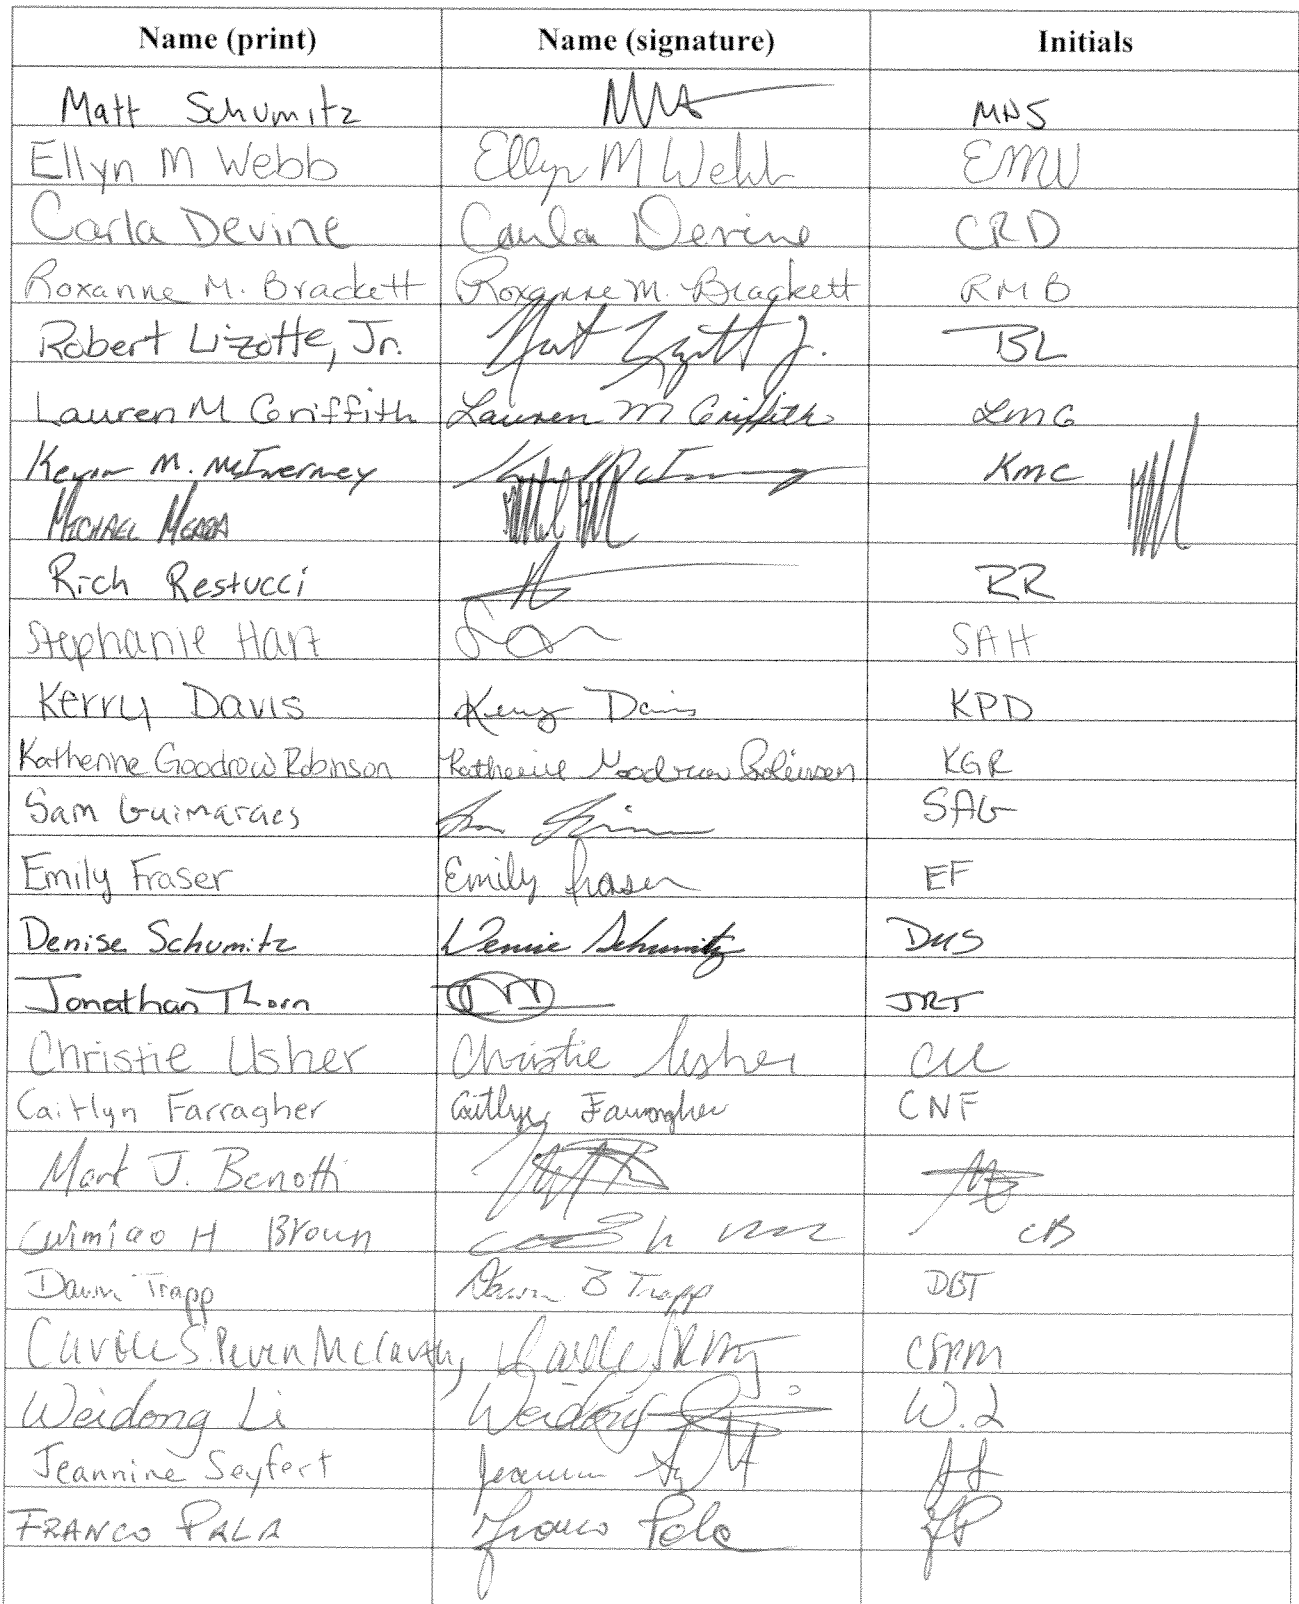 Name (print) Name (signature) Initials
Matt Schumitz MNS
Ellyn M Webb Ellyn M Webb EMW
Carla Devine Carla Devine CRD
Roxanne M. Brackett Roxanne M. Brackett RMB
Robert Lizotte, Jr. BL
Lauren M Griffith Lauren M Griffith LMG
Kevin M. McInerney KMC
Michael
Rich Restucci RR
Stephanie Hart SAH
Kerry Davis Kerry Davis KPD
Katherine Goodrow Robinson Katherine Goodrow Robinson KGR
Sam Guimaraes SAG
Emily Fraser Emily Fraser EF
Denise Schumitz Denise Schumitz DMS
Jonathan Thorn JRT
Christie Usher Christie Usher CU
Caitlyn Farragher Caitlyn Farragher CNF
Mark J. Benotti
H Brown CB
Dawn Trapp Dawn B Trapp DBT
McCarthy CSPM
Weidong Li Weidong W.L
Jeannine Seyfert JS
FRANCO PALA Franco Pala FP